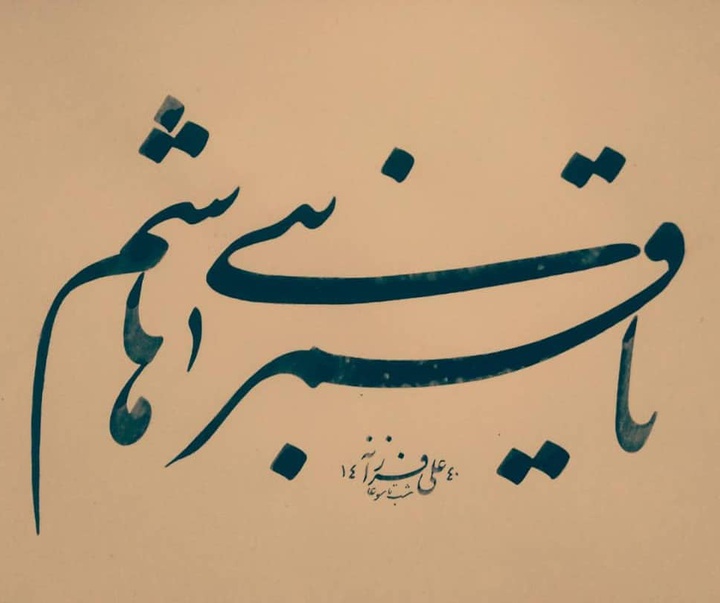 یا قمر بنی هاشم
۴۰ علی فرزانه ۱۴
شب تاسوعا